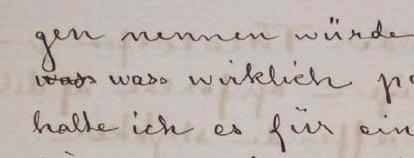 gen nennen würde
was wirklich
halte ich es für ein